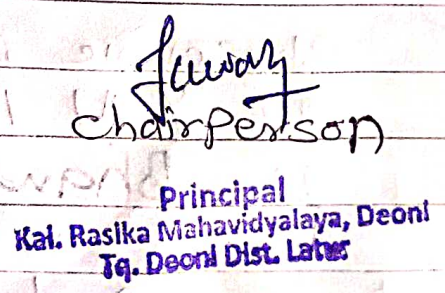 Chairperson
Principal
Kai. Rasika Mahavidyalaya, Deoni
Tq. Deoni Dist. Latur